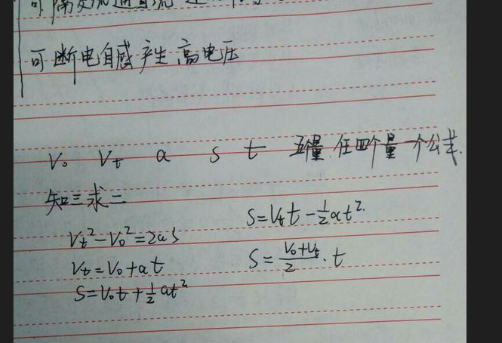 可隔交流通直流
可断电自感产生高电压
V₀ Vt a s t 五个量 任四个量一个公式
知三求二
Vt²-V₀²=2as
Vt=V₀+at
S=V₀t+½at²
S=Vtt-½at²
S=(V₀+Vt)/2·t